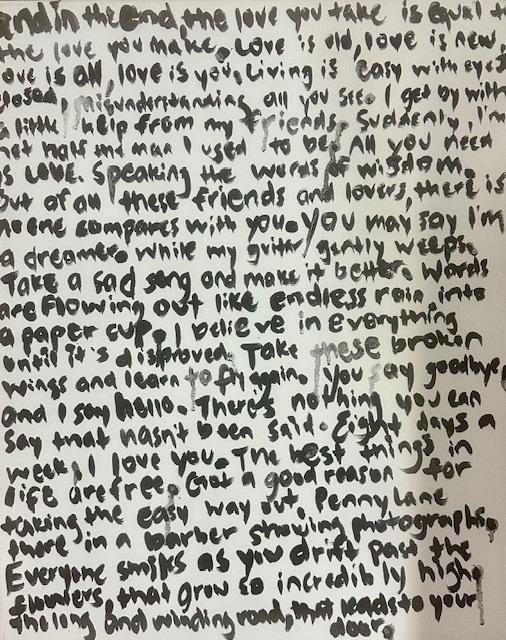 and in the end, the love you take is equal to
the love you make. Love is old, love is new,
love is all, love is you. Living is easy with eyes
closed, misunderstanding all you see. I get by with
a little help from my friends. Suddenly, I'm
not half the man I used to be. All you need
is LOVE. Speaking the words of wisdom.
Out of all these friends and lovers, there is
no one compares with you. You may say I'm
a dreamer. While my guitar gently weeps.
Take a sad song and make it better. Words
are flowing out like endless rain into
a paper cup. I believe in everything
until it's disproved. Take these broken
wings and learn to fly again. You say goodbye,
and I say hello. There's nothing you can
say that hasn't been said. Eight days a
week, I love you. The best things in
life are free. Got a good reason for
taking the easy way out. Penny Lane
there in a barber showing photographs.
Everyone smiles as you drift past the
flowers that grow so incredibly high.
The long and winding road, that leads to your
door.